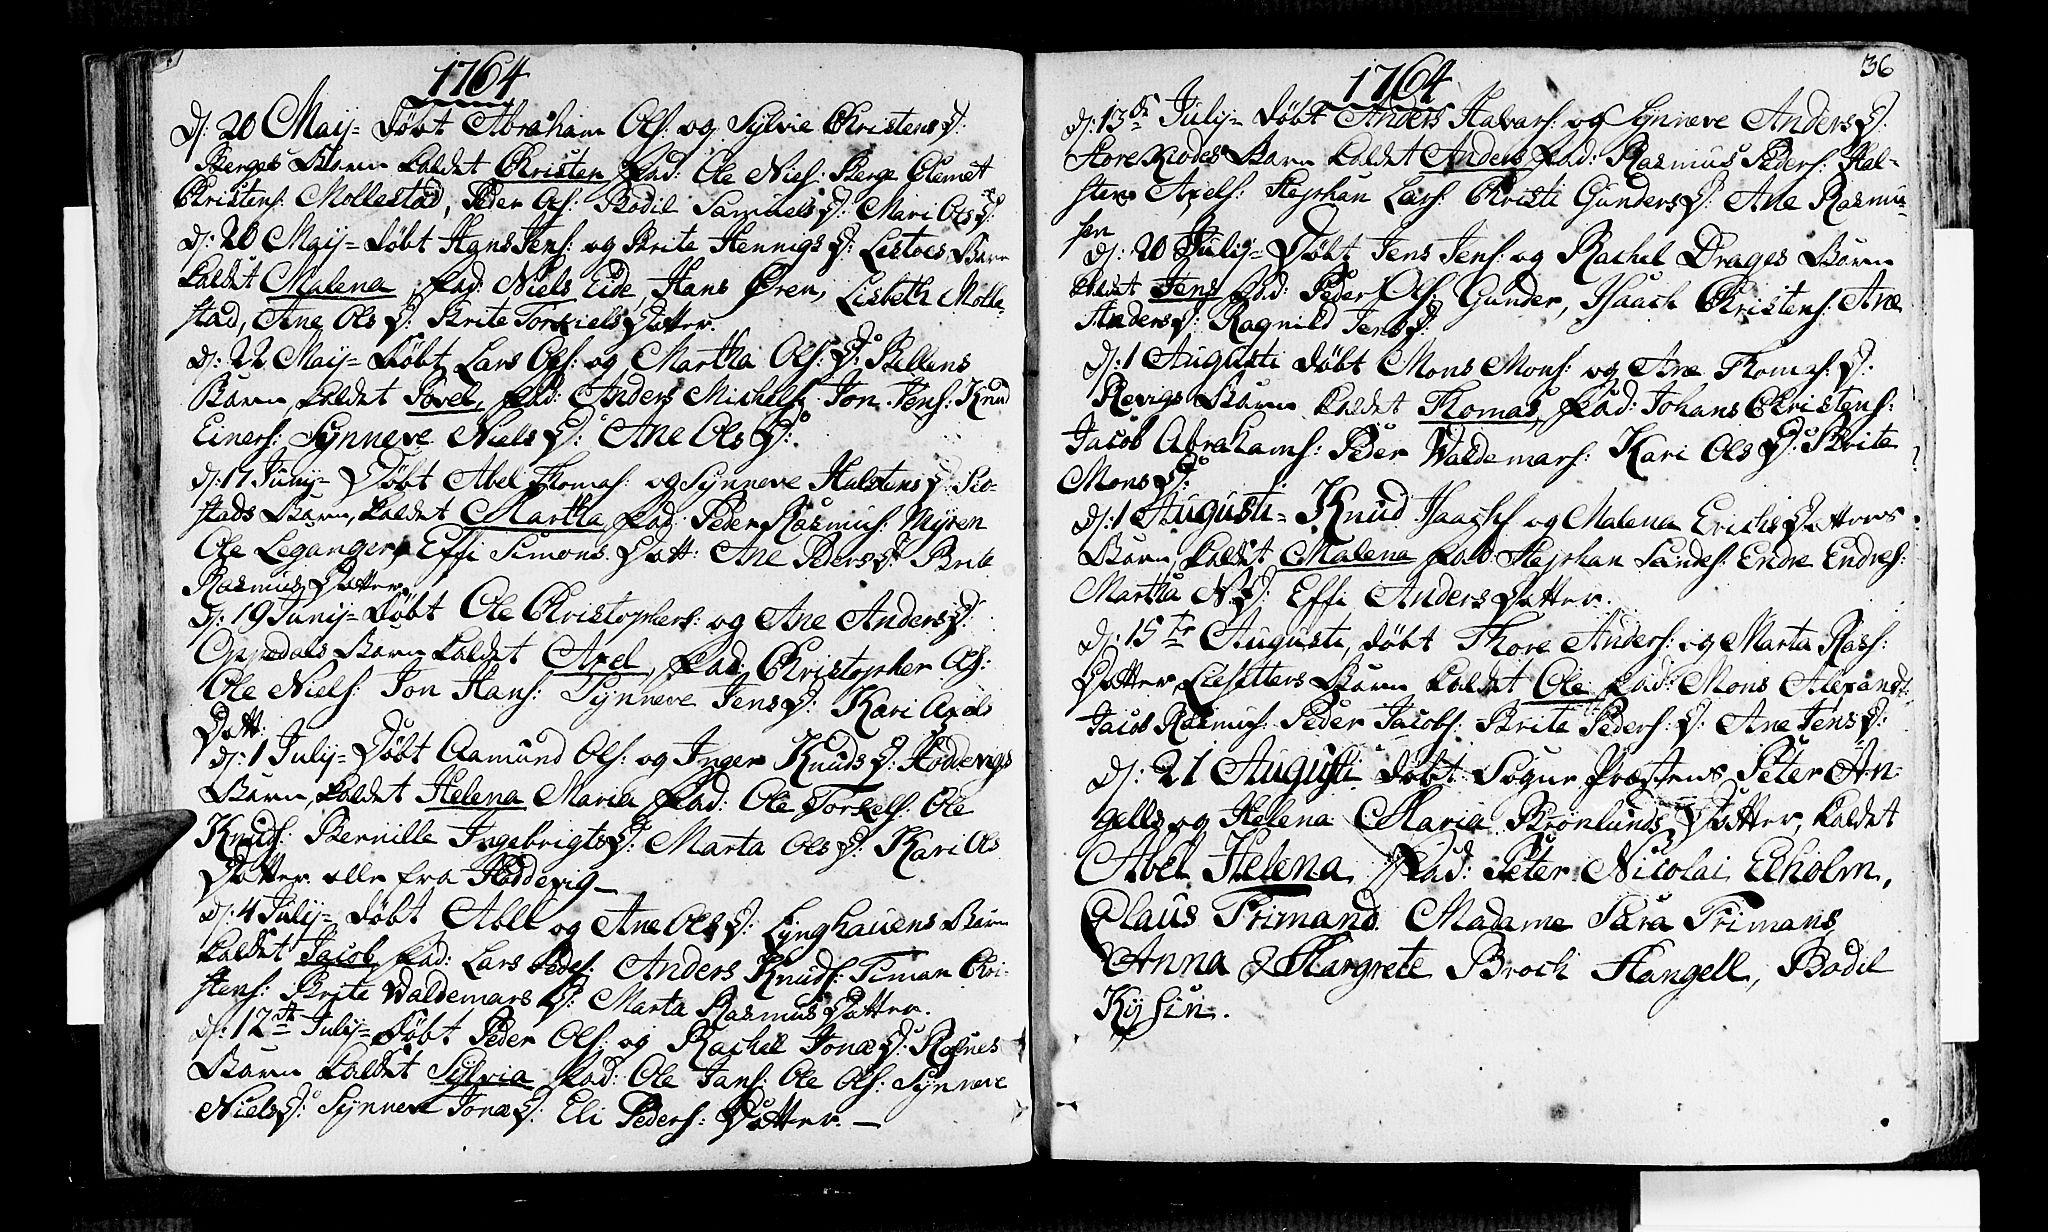 1764
D: 20 Maij= Døbt Abraham Ols: og Sylvie ChristensD:
Berges Barn kaldet Christen Fad: Ole Niels: Berge Clemet
Christens: Mollestad, Peder Ols: Bodil SamuelsD: Mari OlsD:
D: 20 Maij= Døbt Hans Jens: og Brite HennigsD: Listoes Barn
kaldet Malena, Fad: Niels Eide, Hans Øren, Lisbeth Molle-
stad, Ane OlsD: Brite Torkiels Dotter.
D: 22 Maij= Døbt Lars Ols: og Martha Ols:D: Bellens
Barn, kaldet Povel, Fad: Anders Michels: Jon Jens: Knud
Einers: Synneve NielsD: Ane OlsD:
D: 17 Junij= Døbt Abel Thomas: og Synneve HalstensD:
stads Barn, kaldet Martha, Fad: Peder Rasmus: Myren
Ole Leganger, Effi Simons Dott: Ane PedersD: Brite
Rasmus Dotter.
D: 19 Junij= Døbt Ole Christophers: og Ane AndersD:
Oppedals Barn kaldet Axel, Fad: Christopher Ols:
Ole Niels: Jon Hans: Synneve JensD: Kari Axels
Dott:
D: 1 July= Døbt Aamund Ols: og Inger KnudsD: Hoddevigs
Barn, kaldet Helena Maria Fad: Ole Torkels: Ole
Knuds: Bernille IngebrigtsD: Marta OlsD: Kari Ols
Dotter alle fra Hoddevig—
D: 4 July= Døbt Abel og Ane OlsD: Lynghauens Barn
kaldet Jacob, Fad: Lars Peders: Anders Knuds: Timan Chri-
stens: Brite WaldemarsD: Marta Rasmus Dotter.
D: 12te July= Døbt Peder Ols: og Rachel JonæD: Refnes
Barn kaldet Sylvia Fad: Ole Jans: Ole Ols: Synneve
NielsD: Synneve JonæD: Eli Peders: Dotter. —
1764
36
D: 13de July= Døbt Anders Halvars: og Synneve AndersD:
Barn kaldet Anders, Fad: Rasmus Peders: Hal-
sten Axels: Stephan Lars: Christi GundersD: Ane Rasmu-
sen
D: 20 July= Døbt Jens Jens: og Rachel Drages Barn
kaldet Jens Fad: Peder Ols: Gunder, Isaach Christens: Ane
AndersD: Ragnild JensD:
D: 1 Augusti Døbt Mons Mons: og Ane Thomas:D:
Revigs Barn kaldet Thomas, Fad: Johans Christens:
Jacob Abrahams: Peder Waldemars: Kari OlsD: Brite
MonsD:
D: 1 Augusti= Knud Isachs: og Malena Erichs Datters
Barn, kaldet Malena Fad: Stephan Endre Endres:
Martha N:D: Effi Anders Dotter.
D: 15te Augusti, Døbt Thore Anders: og Marta Rass:
Dotter, Liesetters Barn kaldet Ole Fad: Mons Alexand:
Jacob Rasmus: Peder Jacobs: Brite Peders:D: Ane JensD:
D: 21 Augusti Døbt Sogne Præstens Peter An-
gells og Helena Maria Brønlunds Dotter, kaldet
Abel Helena, Fad: Peter Nicolai Ekholm,
Claus Frimand. Madame Sara Frimans
Anna Margrete Broch Hangell, Bodil